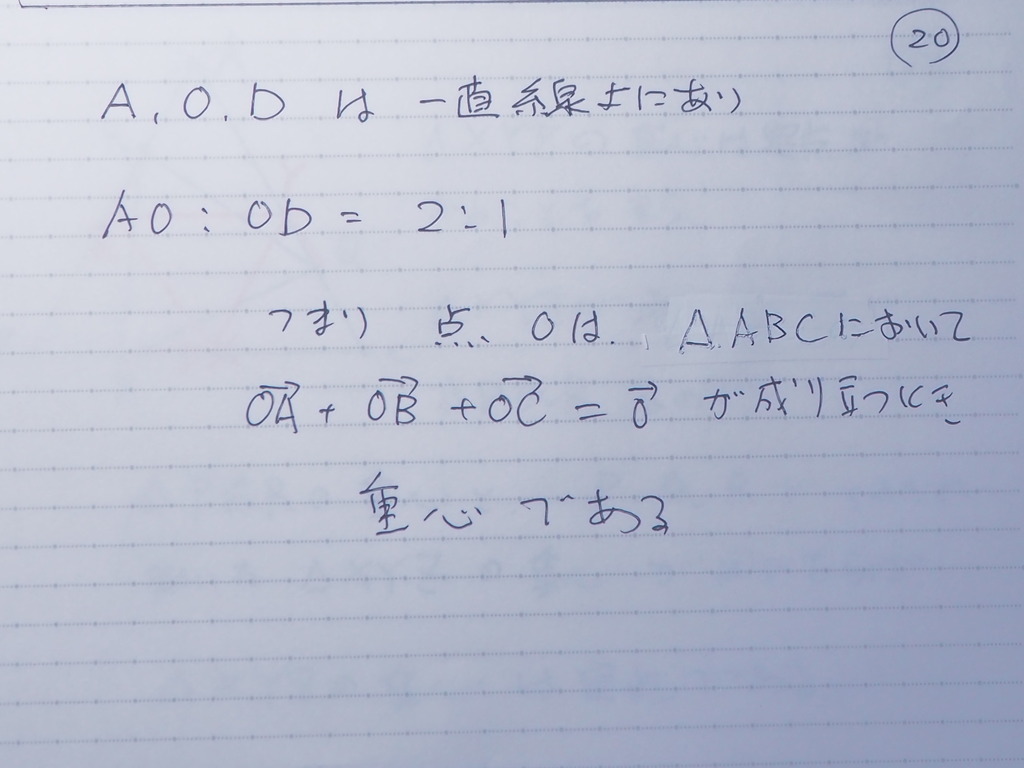 20
A, O, D は 一直線上にあり
AO : OD = 2 : 1
つまり 点 O は, △ABC において
OA→ + OB→ + OC→ = 0→ が成り立つとき
重心である